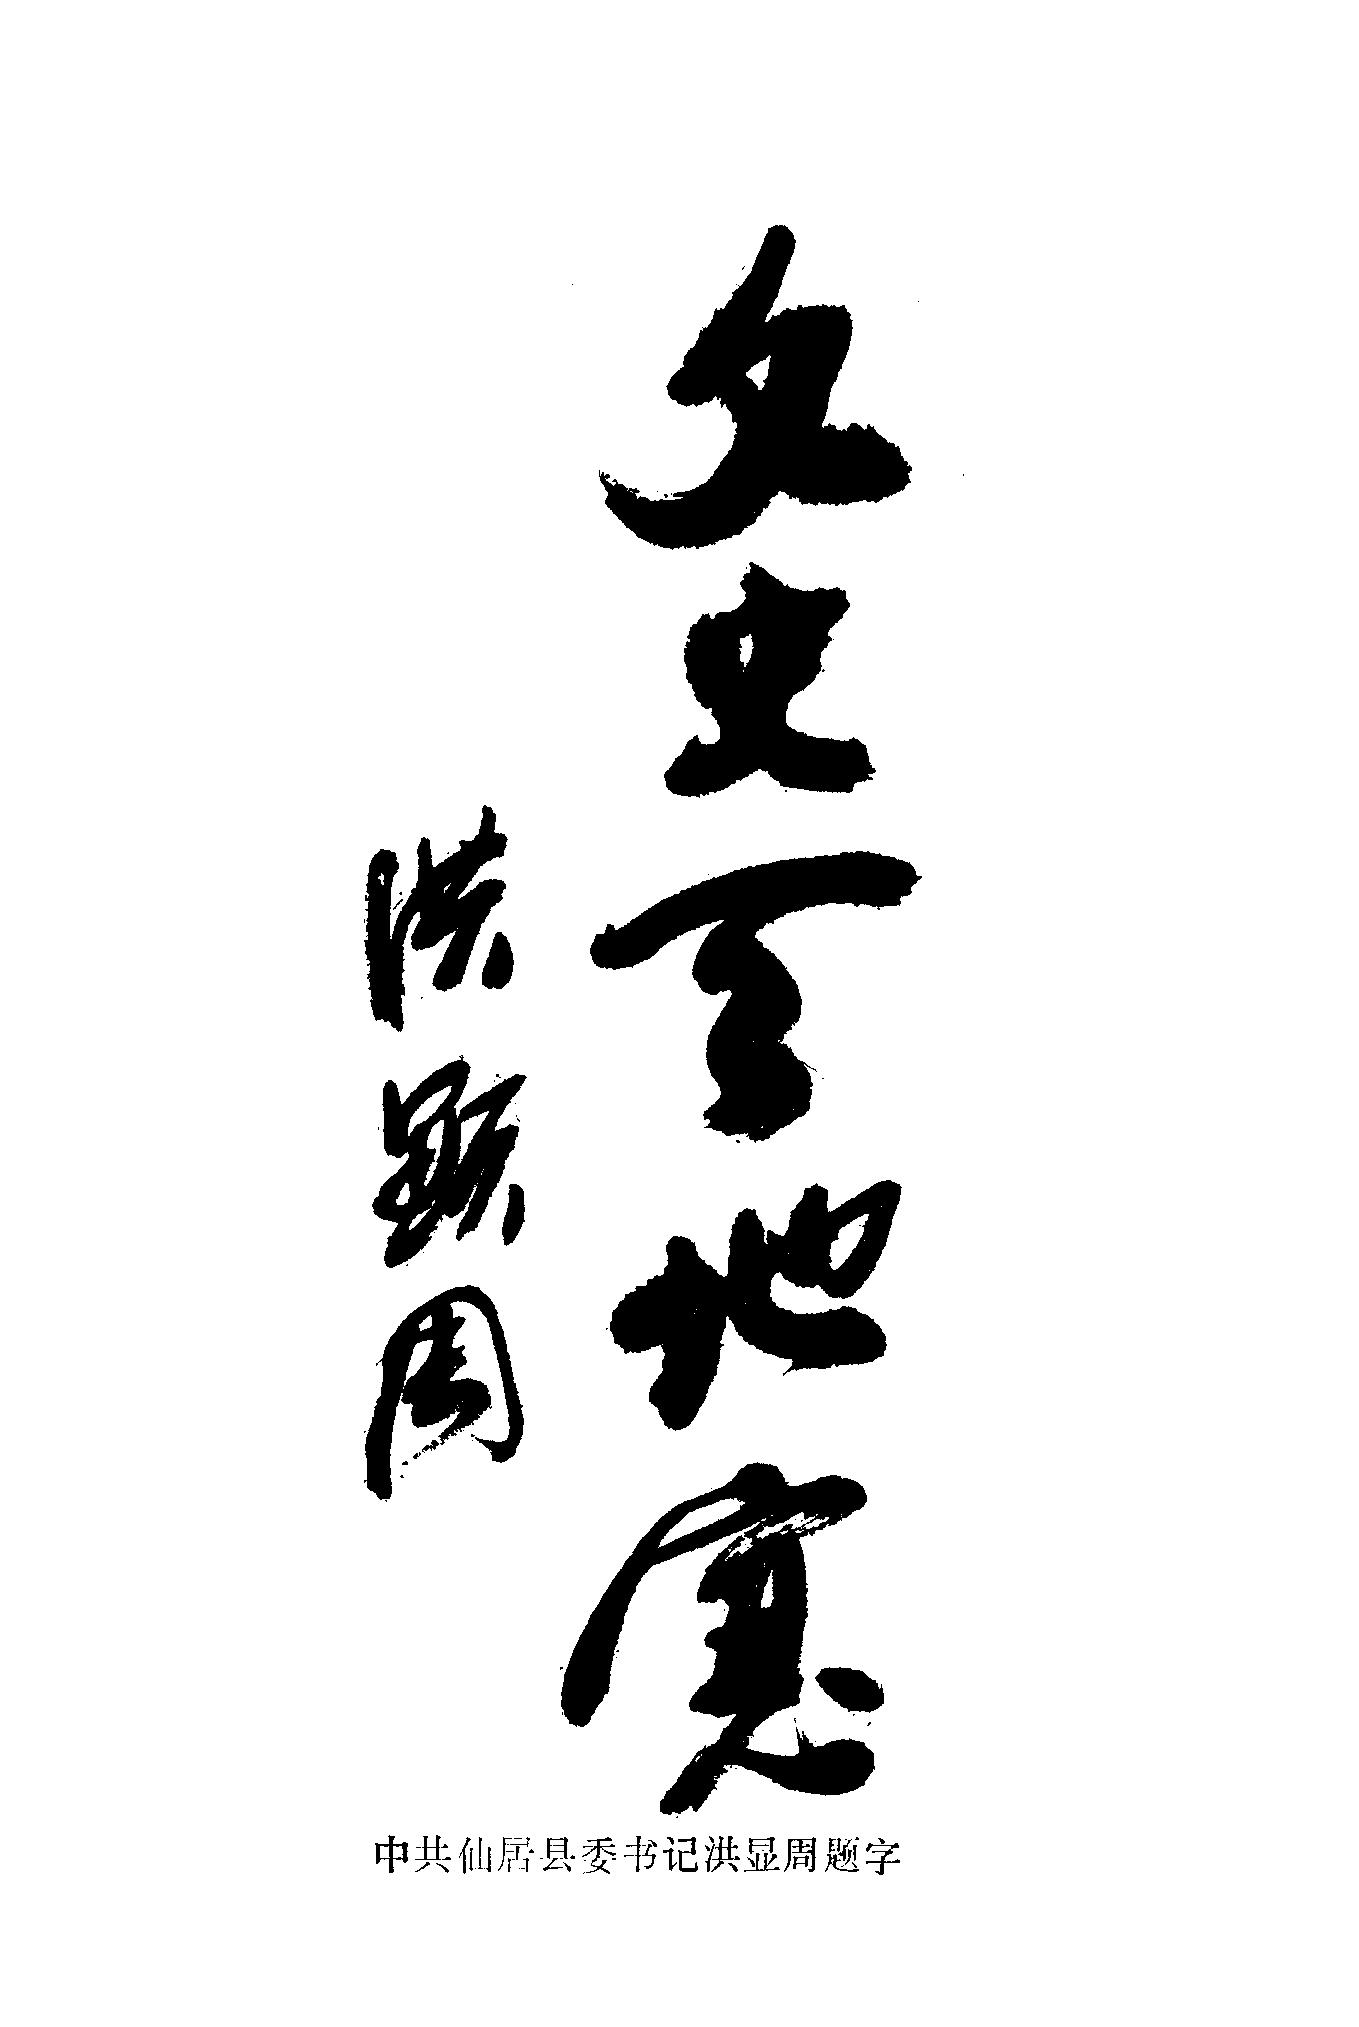 文史天地寬
洪顯周
中共仙居县委书记洪显周题字